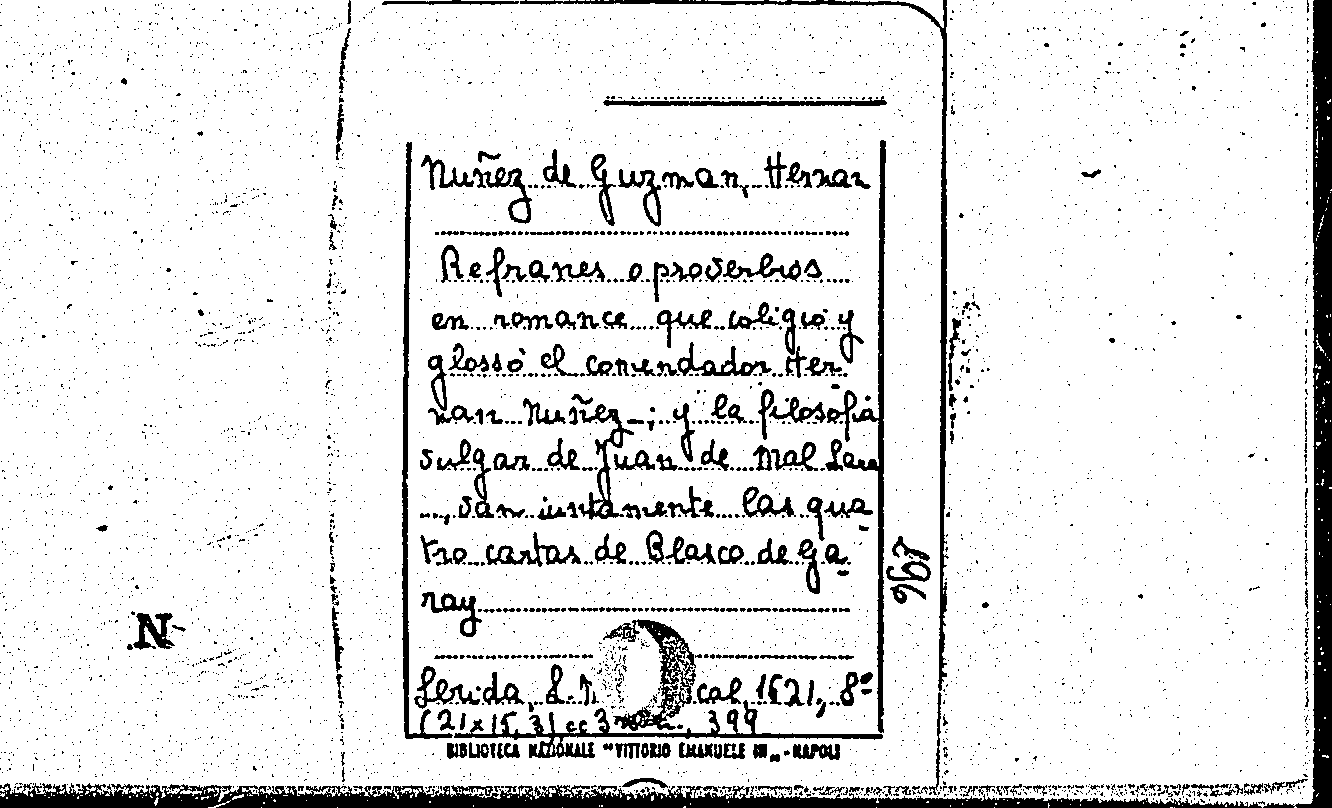 Nuñez de Guzman, Hernan
Refranes o proverbios
en romance que coligio y
glossò el comendador Her-
nan Nuñez ; y la filosofia
vulgar de Juan de Mal Lara
..., van iuntamente las qua-
tro cartas de Blasco de Ga-
ray
968
N
Lerida, L. M cal, 1621, 8º
(21x15,3) cc 3 , 399
BIBLIOTECA NAZIONALE "VITTORIO EMANUELE III„ - NAPOLI